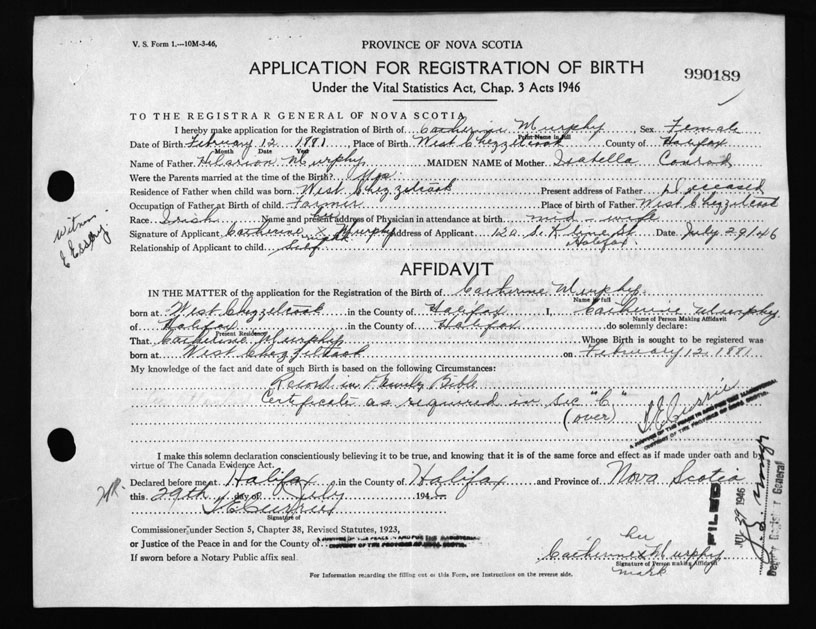 V. S. Form 1.—10M-3-46,
PROVINCE OF NOVA SCOTIA
APPLICATION FOR REGISTRATION OF BIRTH
990189
Under the Vital Statistics Act, Chap. 3 Acts 1946
TO THE REGISTRAR GENERAL OF NOVA SCOTIA
I hereby make application for the Registration of Birth of Catherine Murphy, Sex Female
Print Name in full
Date of Birth February 12 1881 Place of Birth West Chezzelcook County of Halifax
Month Date Year
Name of Father Hilarion Murphy MAIDEN NAME of Mother Isabella Conrod
Were the Parents married at the time of the Birth? Yes
Residence of Father when child was born West Chezzelcook Present address of Father Deceased
Occupation of Father at Birth of child Farmer Place of birth of Father West Chezzelcook
Race Irish Name and present address of Physician in attendance at birth mid-wife
Signature of Applicant Catherine X Murphy Address of Applicant 12a S. Kline St Halifax Date July 29/46
her
mark
Relationship of Applicant to child Self
Witness
AFFIDAVIT
IN THE MATTER of the application for the Registration of the Birth of Catherine Murphy
Name in full
born at West Chezzelcook in the County of Halifax I, Catherine Murphy
Name of Person Making Affidavit
of Halifax in the County of Halifax do solemnly declare:
Present Residence
That Catherine Murphy Whose Birth is sought to be registered was
born at West Chezzelcook on February 12, 1881
My knowledge of the fact and date of such Birth is based on the following Circumstances:
Record in Family Bible
Certificate as required in Sec "C"
(over)
I make this solemn declaration conscientiously believing it to be true, and knowing that it is of the same force and effect as if made under oath and by
virtue of The Canada Evidence Act.
Declared before me at Halifax in the County of Halifax and Province of Nova Scotia
this 29th day of July 1946
Signature of
Commissioner under Section 5, Chapter 38, Revised Statutes, 1923,
or Justice of the Peace in and for the County of
If sworn before a Notary Public affix seal
FILED
JUL 29 1946
her
Catherine x Murphy
Signature of Person making Affidavit
mark
For Information regarding the filling out of this Form, see Instructions on the reverse side.